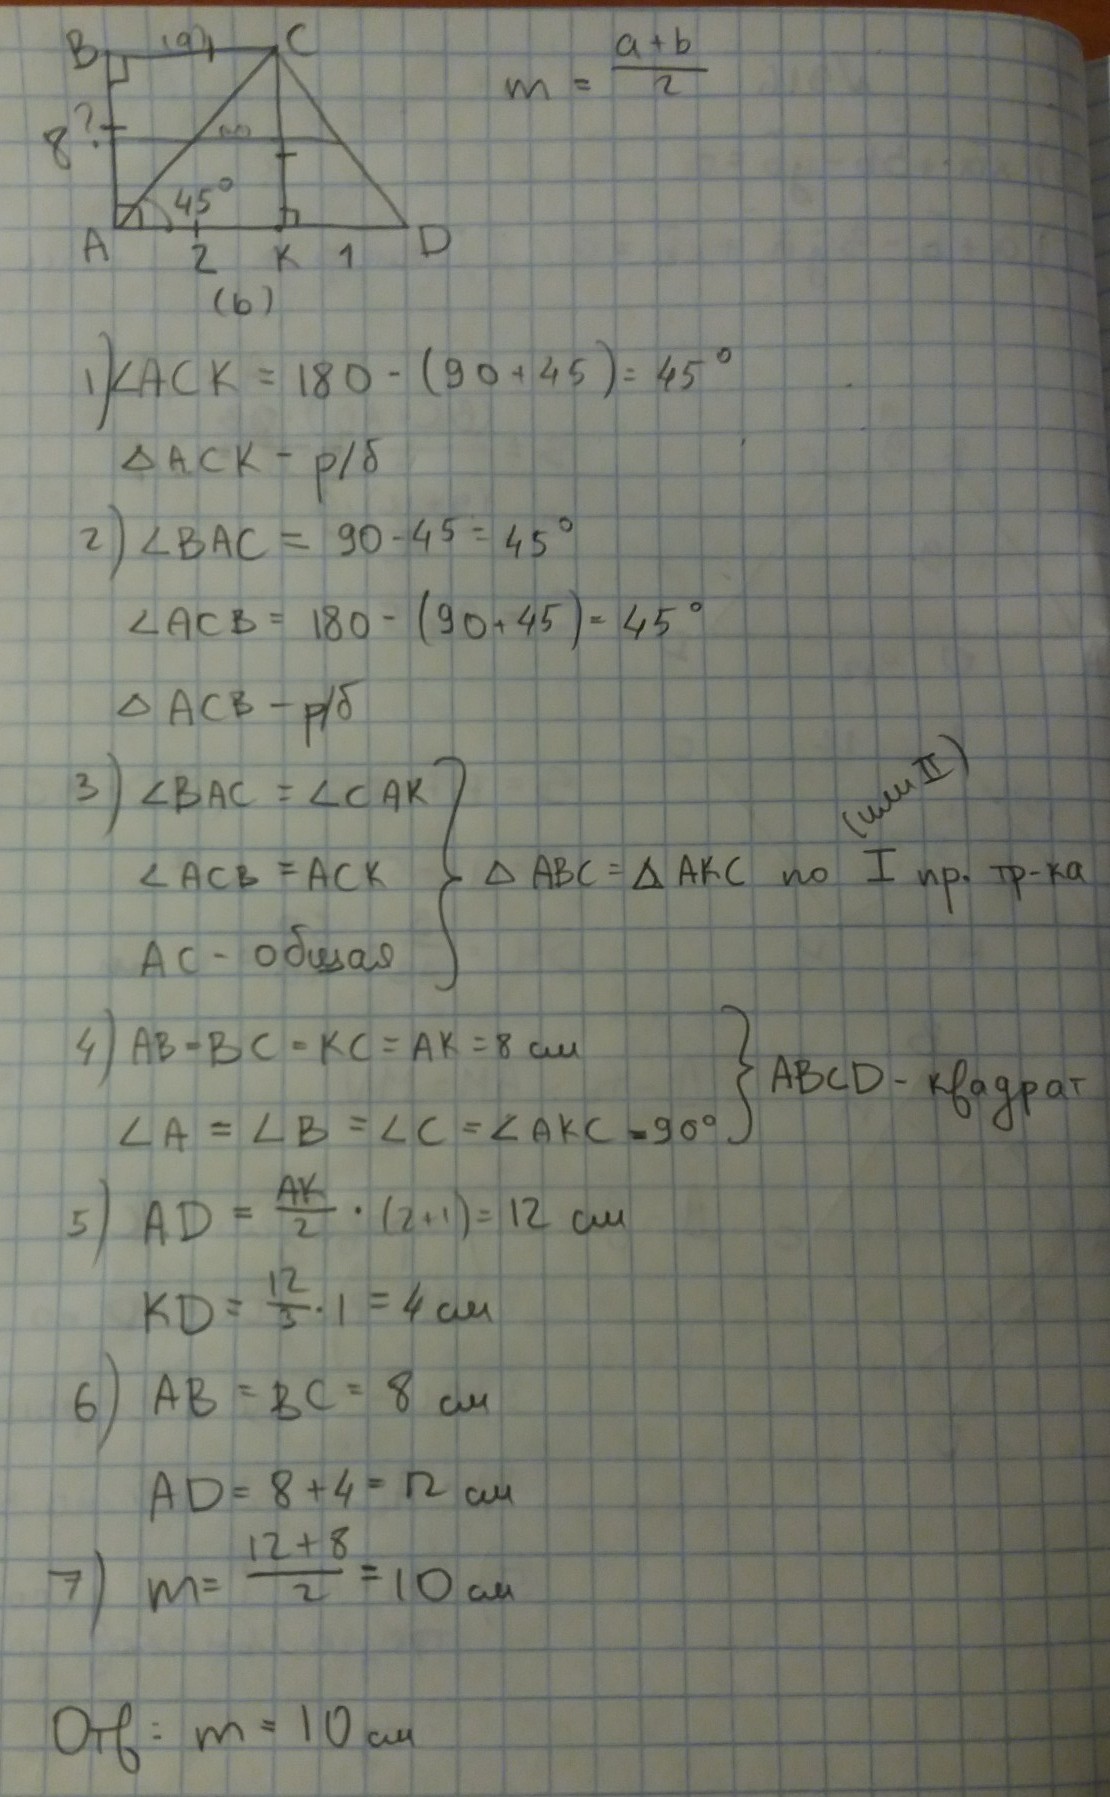 B (a) C
m = a+b / 2
8 ?
m
45°
A 2 K 1 D
(b)
1) ∠ACK = 180 - (90+45) = 45°
△ACK - р/б
2) ∠BAC = 90-45 = 45°
∠ACB = 180 - (90+45) = 45°
△ACB - р/б
3) ∠BAC = ∠CAK
∠ACB = ACK
AC - общая
} △ABC = △AKC по I пр. тр-ка
(или II)
4) AB = BC = KC = AK = 8 см
∠A = ∠B = ∠C = ∠AKC = 90°
} ABCD - квадрат
5) AD = AK/2 · (2+1) = 12 см
KD = 12/3 · 1 = 4 см
6) AB = BC = 8 см
AD = 8+4 = 12 см
7) m = 12+8 / 2 = 10 см
Отв: m = 10 см